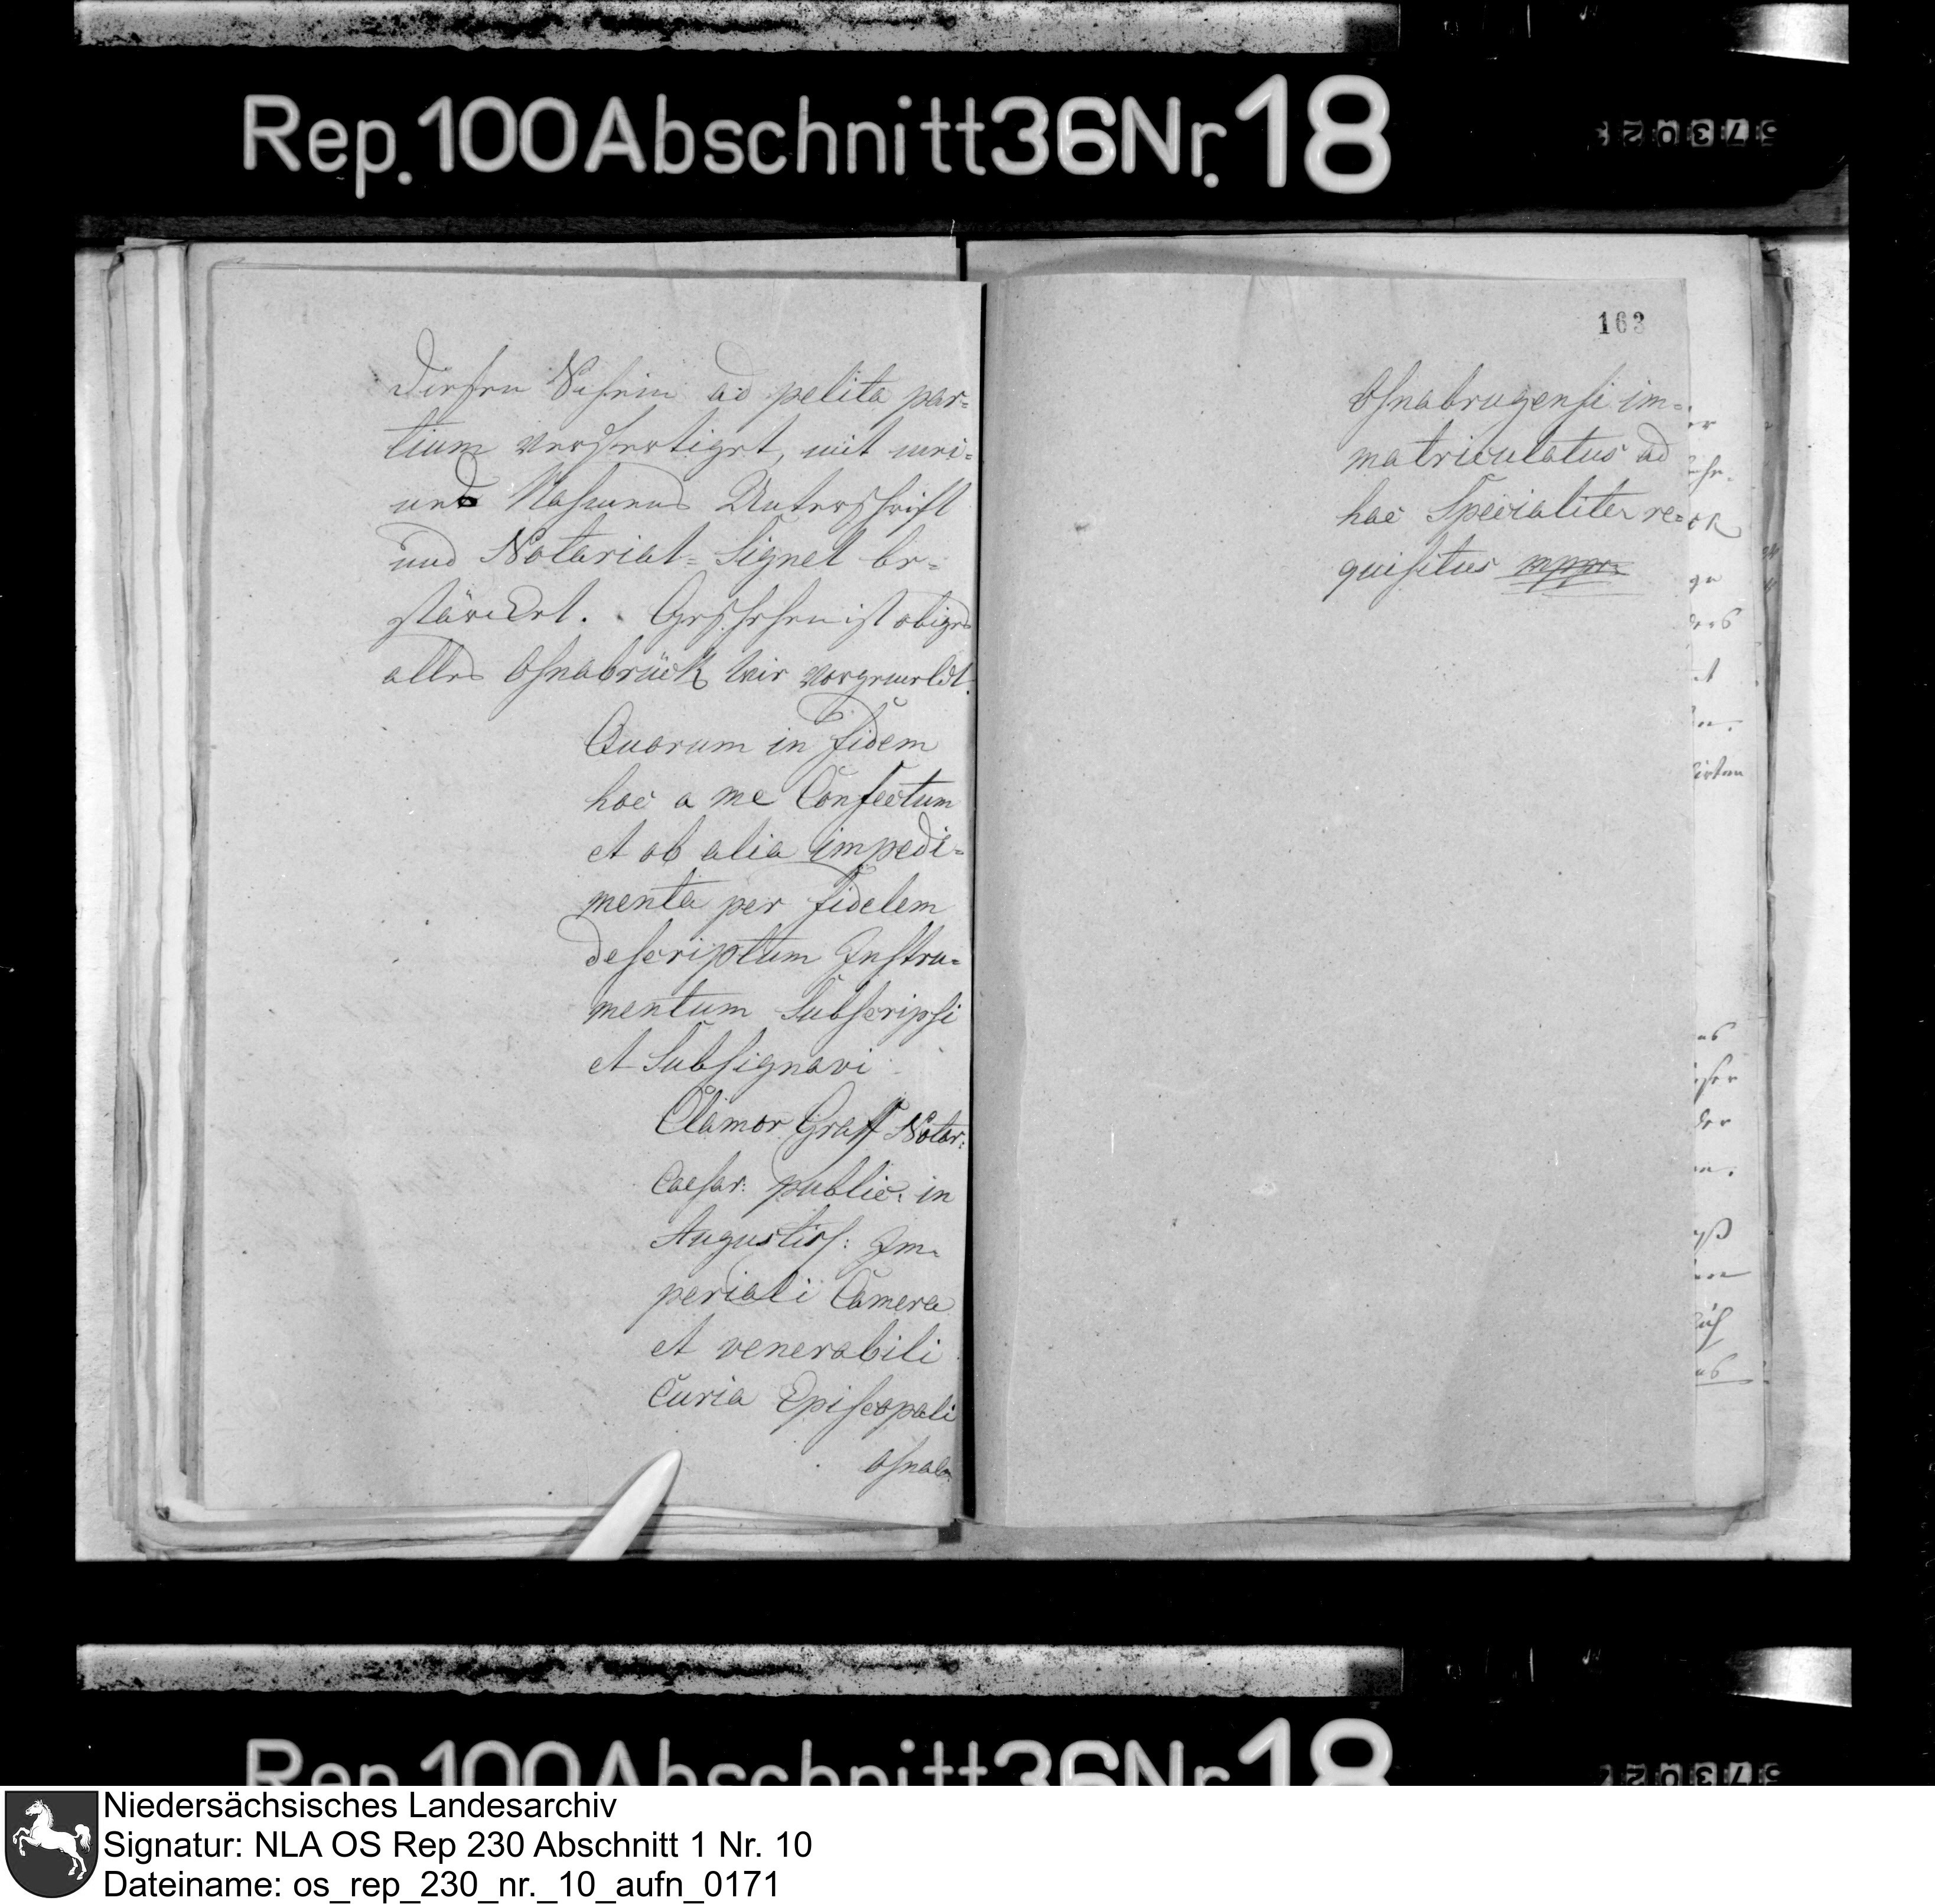 Rep. 100 Abschnitt 36 Nr. 18
diesen Schein ad petita par=
tium verfertiget, mit mei=
nes Nahmens Unterschrift
und Notariat=Signet be=
stärcket. Geschehen ist obiges
alles Osnabrück wie vorgemeldt.
Quorum in fidem
hoc a me Confectum
et ob alia impedi=
menta per fidelem
descriptum Instru=
mentum Subscripsi
et Subsignavi
Clamor Graff Notar:
Caesar: public: in
Augustiss: Im=
periali Camera
et venerabili
Curia Episcopali
Osnab:
163
Osnabrugensi im=
matriculatus ad
hac Specialiter re=
quisitus mppr.
Rep. 100 Abschnitt 36 Nr. 18
Niedersächsisches Landesarchiv
Signatur: NLA OS Rep 230 Abschnitt 1 Nr. 10
Dateiname: os_rep_230_nr._10_aufn_0171